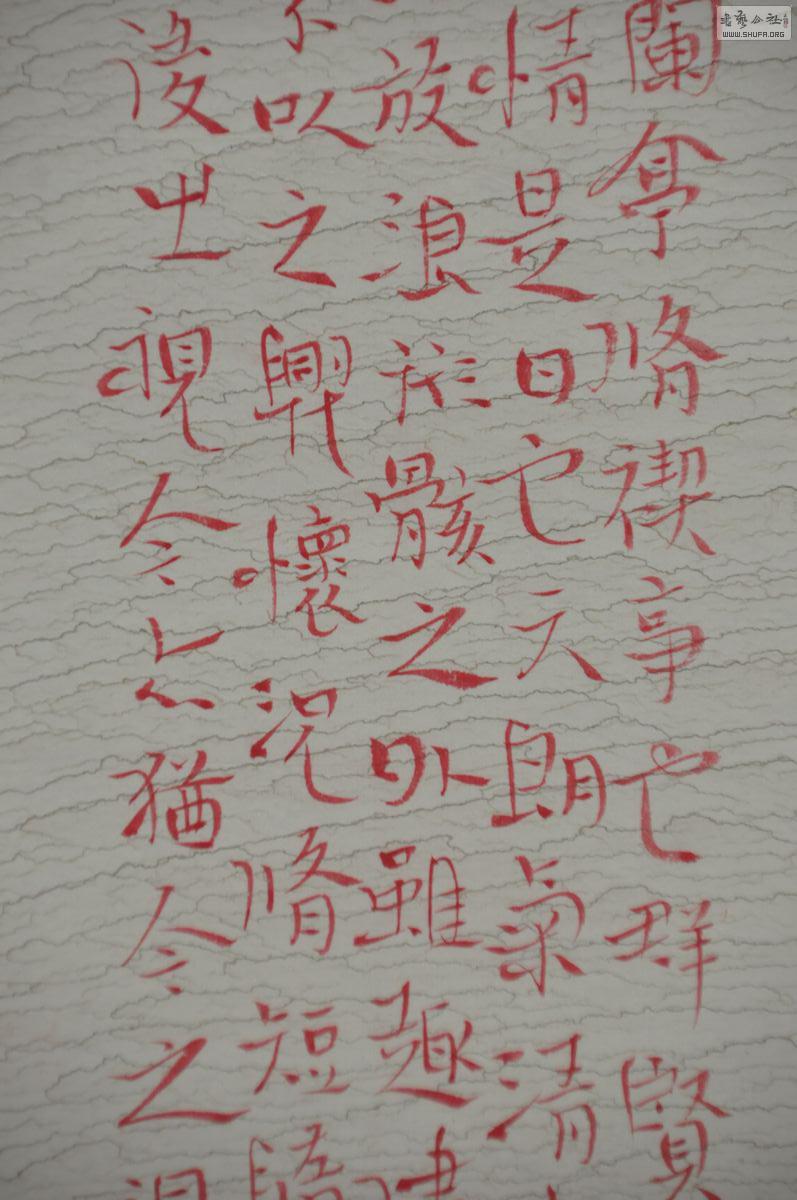 蘭亭脩禊事也群賢
情是日也天朗氣清
放浪於形骸之外雖趣
以之興懷況脩短
後之視今亦猶今之
書藝公社
WWW.SHUFA.ORG